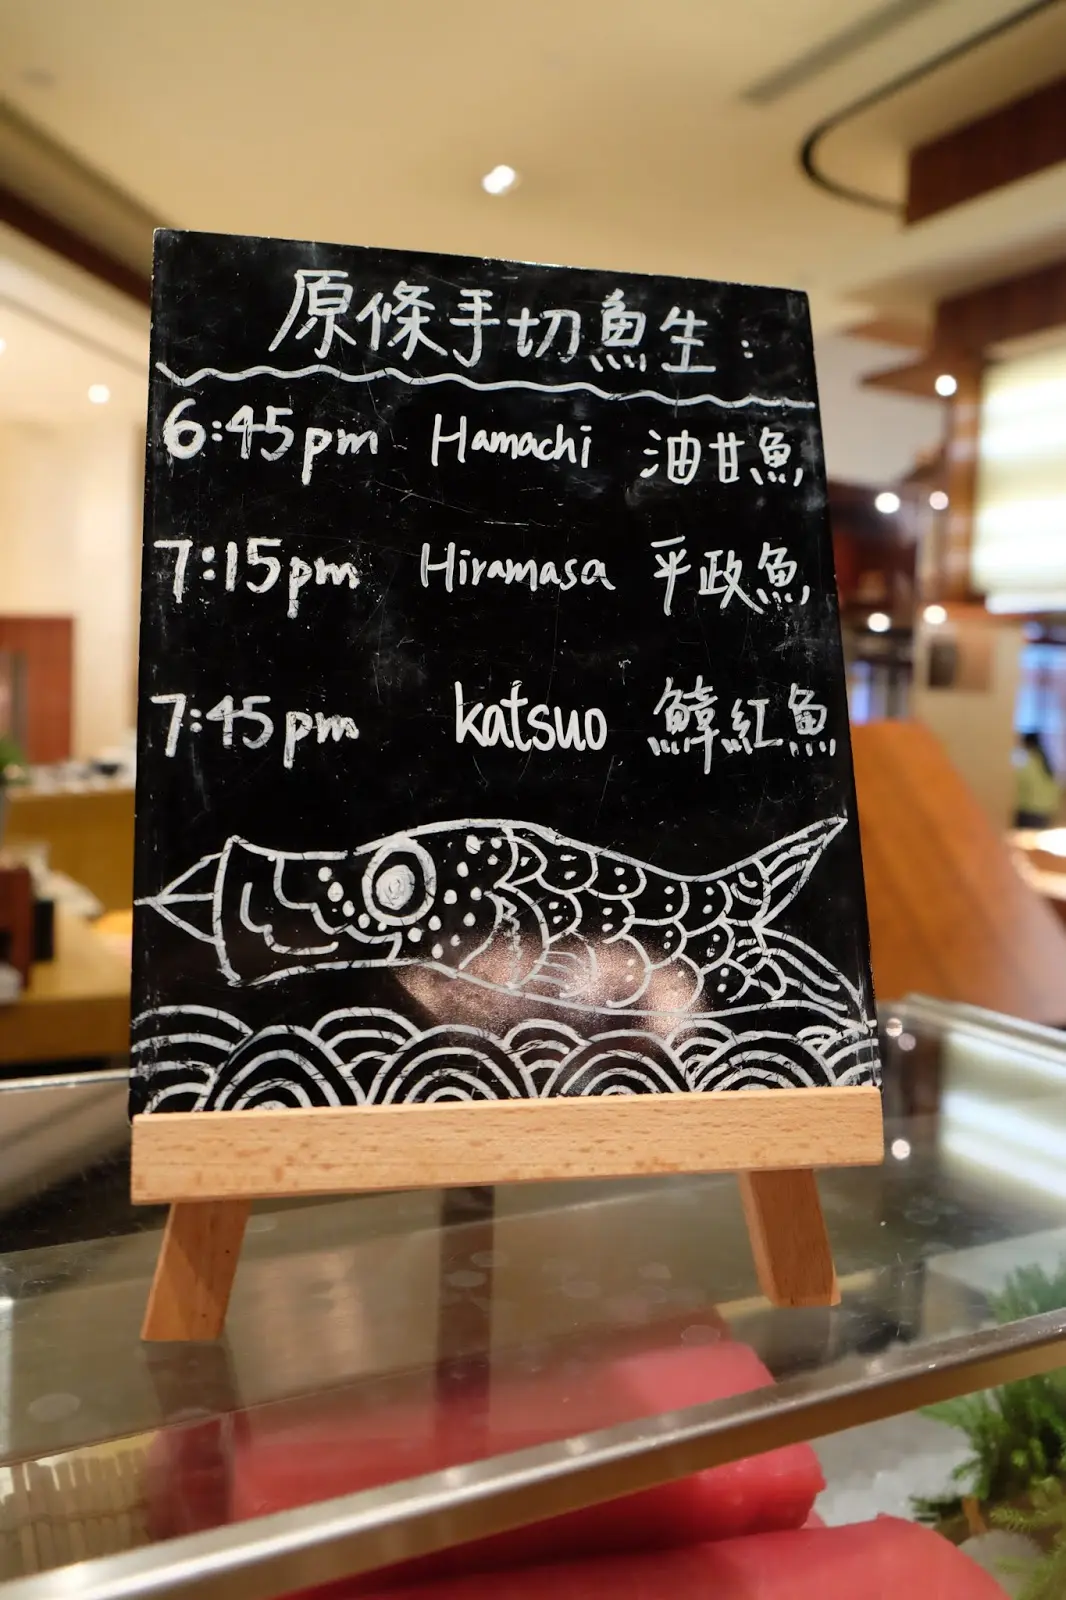 原條手切魚生:
6:45pm Hamachi 油甘魚
7:15pm Hiramasa 平政魚
7:45pm katsuo 鱆紅魚